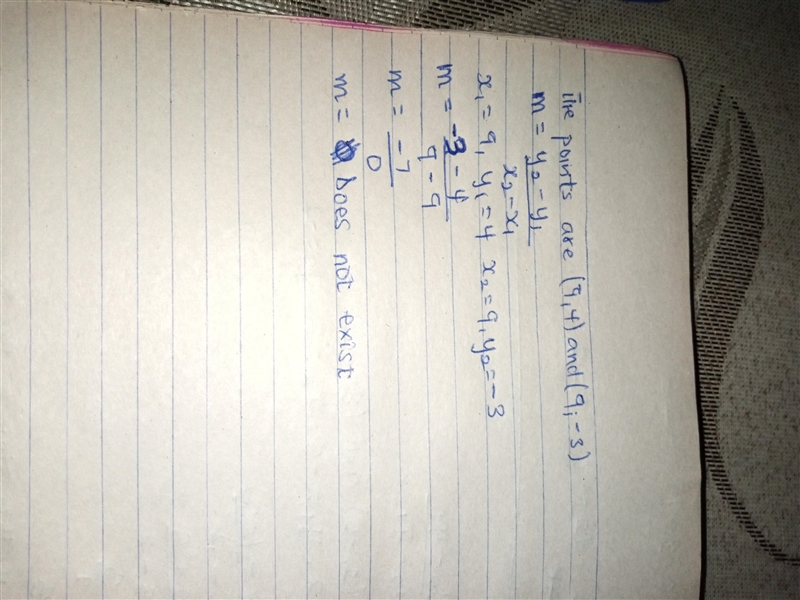 The points are (9,4) and (9,-3)
m = y₂ - y₁
x₂ - x₁
x₁ = 9, y₁ = 4 x₂ = 9, y₂ = -3
m = -3 - 4
9 - 9
m = -7
0
m = Does not exist